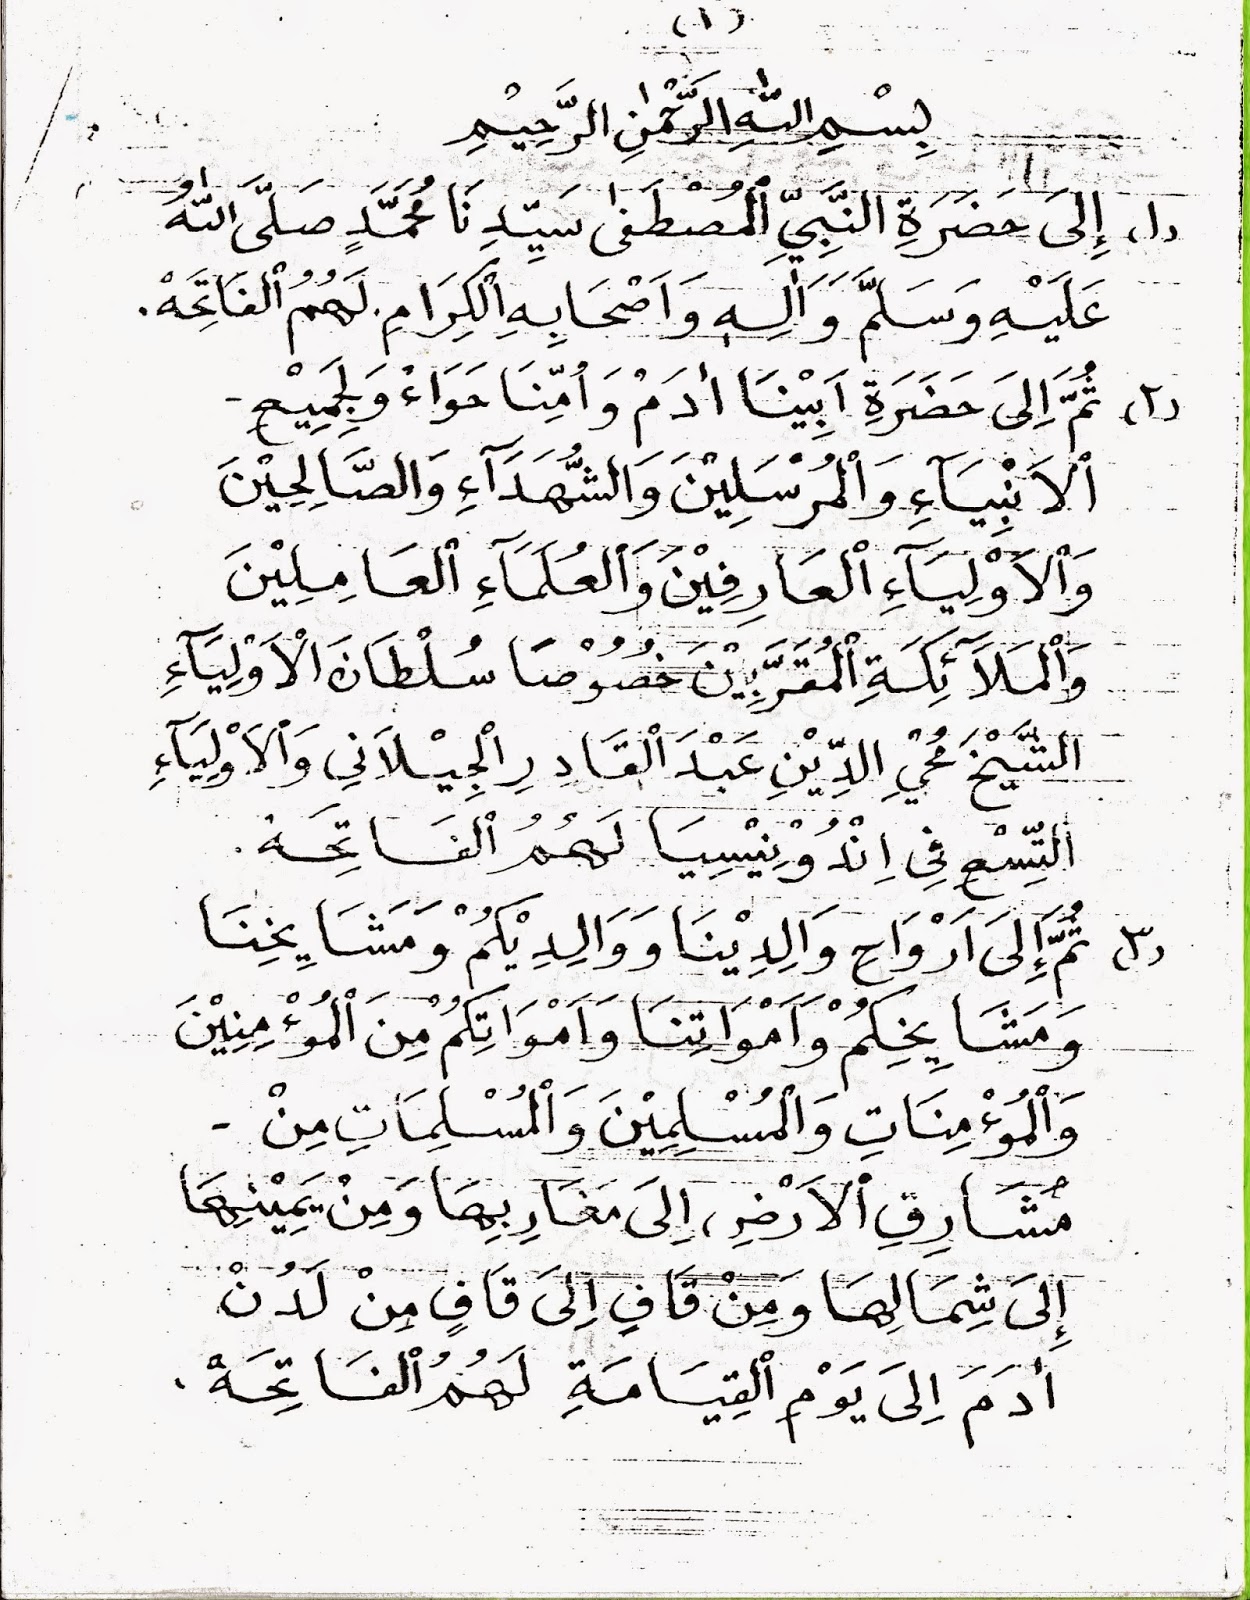 (١)
بِسْمِ اللهِ الرَّحْمٰنِ الرَّحِيْمِ
(١) إِلَى حَضَرَةِ النَّبِيِّ الْمُصْطَفٰى سَيِّدِنَا مُحَمَّدٍ صَلَّى اللهُ
عَلَيْهِ وَسَلَّمَ وَاٰلِهِ وَاَصْحَابِهِ الْكِرَامِ. لَهُمُ الْفَاتِحَةْ.
(٢) ثُمَّ اِلَى حَضَرَةِ اَبِيْنَا اٰدَمْ وَاُمِّنَا حَوَاءْ وَلِجَمِيْعِ -
اْلاَنْبِيَآءِ وَالْمُرْسَلِيْنَ وَالشُّهَدَآءِ وَالصَّالِحِيْنَ
وَاْلاَوْلِيَآءِ الْعَارِفِيْنَ وَالْعُلَمَآءِ الْعَامِلِيْنَ
وَالْمَلَآئِكَةِ الْمُقَرَّبِيْنَ خُصُوْصًا سُلْطَانَ الْاَوْلِيَآءِ
الشَّيْخَ مُحْيِ الدِّيْنِ عَبْدَ الْقَادِرِ الْجِيْلاَنِي وَاْلاَوْلِيَآءِ
التِّسْعِ فِى اِنْدُوْنِيْسِيَا لَهُمُ الْفَاتِحَةْ.
(٣) ثُمَّ إِلَى اَرْوَاحِ وَالِدِيْنَا وَوَالِدِيْكُمْ وَمَشَايِخِنَا
وَمَشَايِخِكُمْ وَاَمْوَاتِنَا وَاَمْوَاتِكُمْ مِنَ الْمُؤْمِنِيْنَ
وَالْمُؤْمِنَاتِ وَالْمُسْلِمِيْنَ وَالْمُسْلِمَاتِ مِنْ -
مَشَارِقِ اْلاَرْضِ، اِلَى مَغَارِبِهَا وَمِنْ يَمِيْنِهَا
إِلَى شِمَالِهَا وَمِنْ قَافٍ اِلَى قَافٍ مِنْ لَدُنْ
اٰدَمَ اِلَى يَوْمِ الْقِيَامَةِ لَهُمُ الْفَاتِحَةْ.